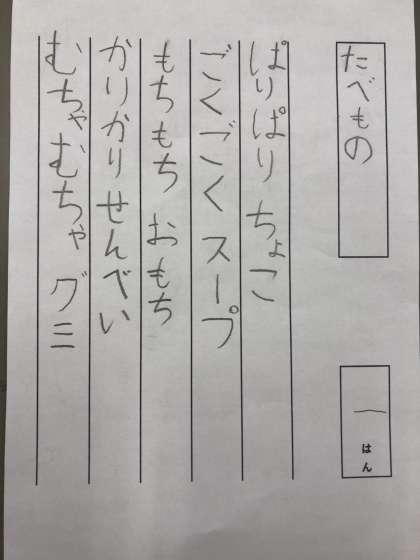 たべもの
一はん
ぱりぱりちょこ
ごくごくスープ
もちもちおもち
かりかりせんべい
むちゃむちゃグミ